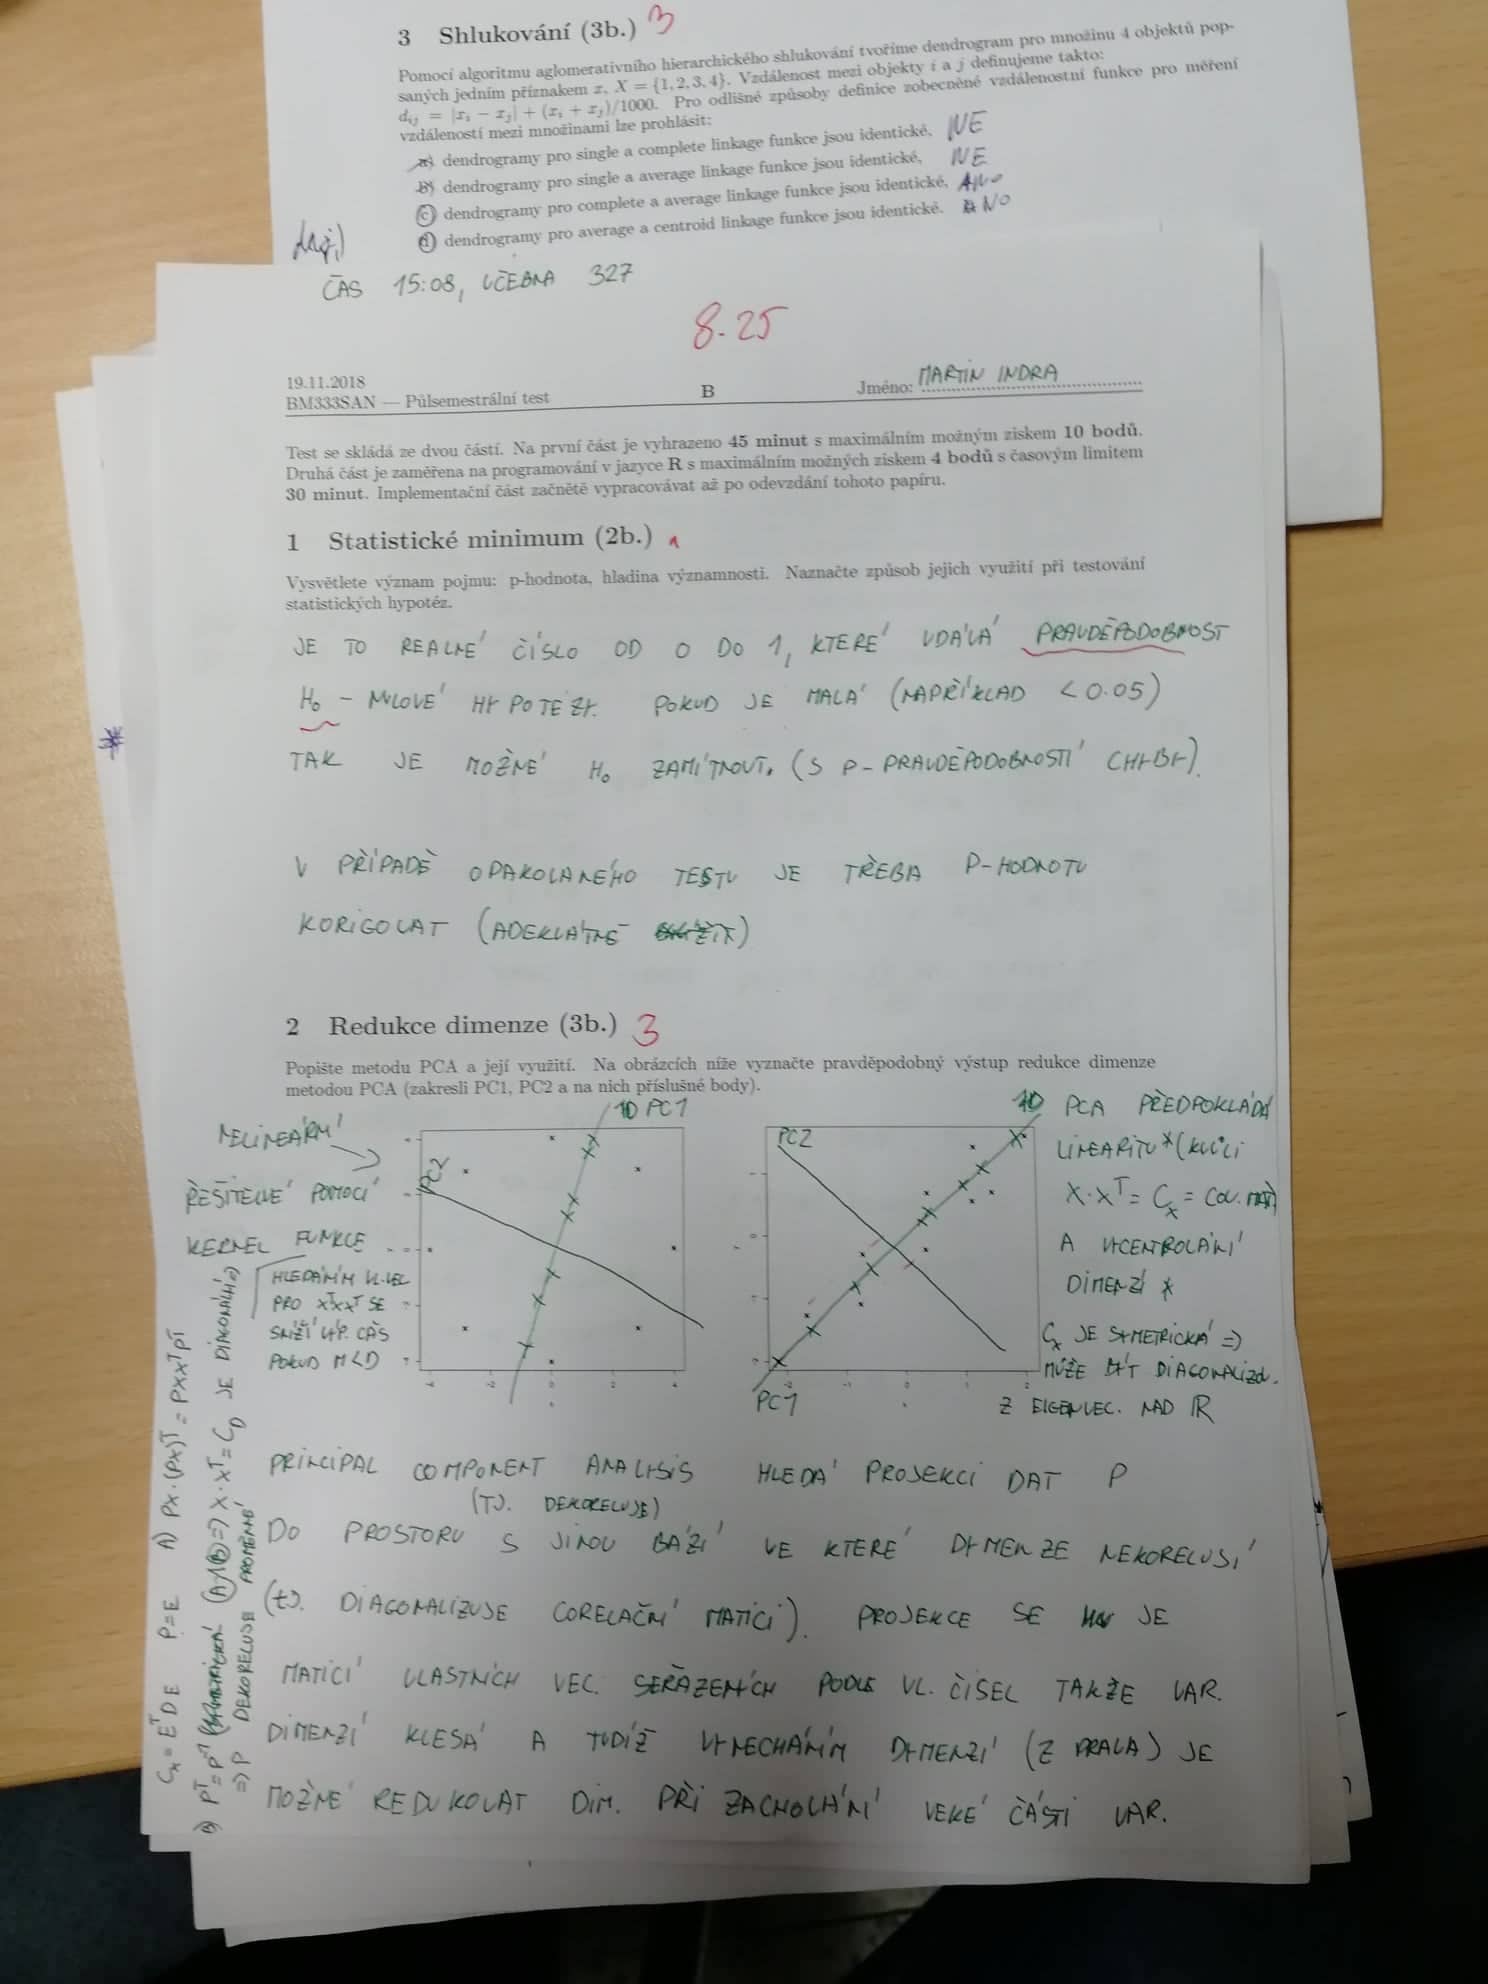 3 Shlukování (3b.) 3
Pomocí algoritmu aglomerativního hierarchického shlukování tvoříme dendrogram pro množinu 4 objektů pop-
saných jedním příznakem x, X = {1, 2, 3, 4}. Vzdálenost mezi objekty i a j definujeme takto:
d_ij = |x_i − x_j| + (x_i + x_j)/1000. Pro odlišné způsoby definice zobecněné vzdálenostní funkce pro měření
vzdáleností mezi množinami lze prohlásit:
a) dendrogramy pro single a complete linkage funkce jsou identické, NE
b) dendrogramy pro single a average linkage funkce jsou identické, NE
c) dendrogramy pro complete a average linkage funkce jsou identické, ANO
d) dendrogramy pro average a centroid linkage funkce jsou identické. ANO
ČAS 15:08, UČEBNA 327
8.25
19.11.2018
BM333SAN — Půlsemestrální test B Jméno: MARTIN INDRA
Test se skládá ze dvou částí. Na první část je vyhrazeno 45 minut s maximálním možným ziskem 10 bodů.
Druhá část je zaměřena na programování v jazyce R s maximálním možných ziskem 4 bodů s časovým limitem
30 minut. Implementační část začněte vypracovávat až po odevzdání tohoto papíru.
1 Statistické minimum (2b.) 1
Vysvětlete význam pojmu: p-hodnota, hladina významnosti. Naznačte způsob jejich využití při testování
statistických hypotéz.
JE TO REALNÉ ČÍSLO OD 0 DO 1, KTERÉ UDÁVÁ PRAVDĚPODOBNOST
H₀ - NULOVÉ HYPOTÉZY. POKUD JE MALÁ (NAPŘÍKLAD < 0.05)
TAK JE MOŽNÉ H₀ ZAMÍTNOUT. (S P-PRAVDĚPODOBNOSTÍ CHYBY).
V PŘÍPADĚ OPAKOVANÉHO TESTU JE TŘEBA P-HODNOTU
KORIGOVAT (ADEKVÁTNĚ)
2 Redukce dimenze (3b.) 3
Popište metodu PCA a její využití. Na obrázcích níže vyznačte pravděpodobný výstup redukce dimenze
metodou PCA (zakresli PC1, PC2 a na nich příslušné body).
NELINEÁRNÍ
ŘEŠITELNÉ POMOCÍ
KERNEL FUNKCE
HLEDÁNÍM VL. VEC
PRO XᵀXXᵀ SE
SNÍŽÍ VÝP. ČAS
POKUD M<D
1D PC1
PC2
-4 -2 0 2 4
PC2
PC1
-2 -1 0 1 2
1D PCA PŘEDPOKLÁDÁ
LINEARITU * (KVŮLI
X·Xᵀ = Cₓ = COV. MAT)
A VYCENTROVÁNÍ
DIMENZÍ *
Cₓ JE SYMETRICKÁ =>
MŮŽE BÝT DIAGONALIZOV.
Z EIGENVEC. NAD ℝ
PRINCIPAL COMPONENT ANALYSIS HLEDÁ PROJEKCI DAT P
(TJ. DEKORELUJE)
DO PROSTORU S JINOU BÁZÍ VE KTERÉ DYMENZE NEKORELUJÍ
(tJ. DIAGONALIZUJE CORELAČNÍ MATICI). PROJEKCE SE JE
MATICÍ VLASTNÍCH VEC. SEŘAZENÝCH PODLE VL. ČÍSEL TAKŽE VAR.
DIMENZÍ KLESÁ A TUDÍŽ VYNECHÁNÍM DYMENZÍ (Z PRAVA) JE
MOŽNÉ REDUKOVAT DIM. PŘI ZACHOVÁNÍ VEKÉ ČÁSTI VAR.
Cₓ = EᵀDE P=E A) PX·(PX)ᵀ = PXXᵀPᵀ
B) Pᵀ=P⁻¹ (A∧B) => X·Xᵀ = C_D JE DIAGONÁLNÍ =>
=> P DEKORELUJE PROMĚNNÉ